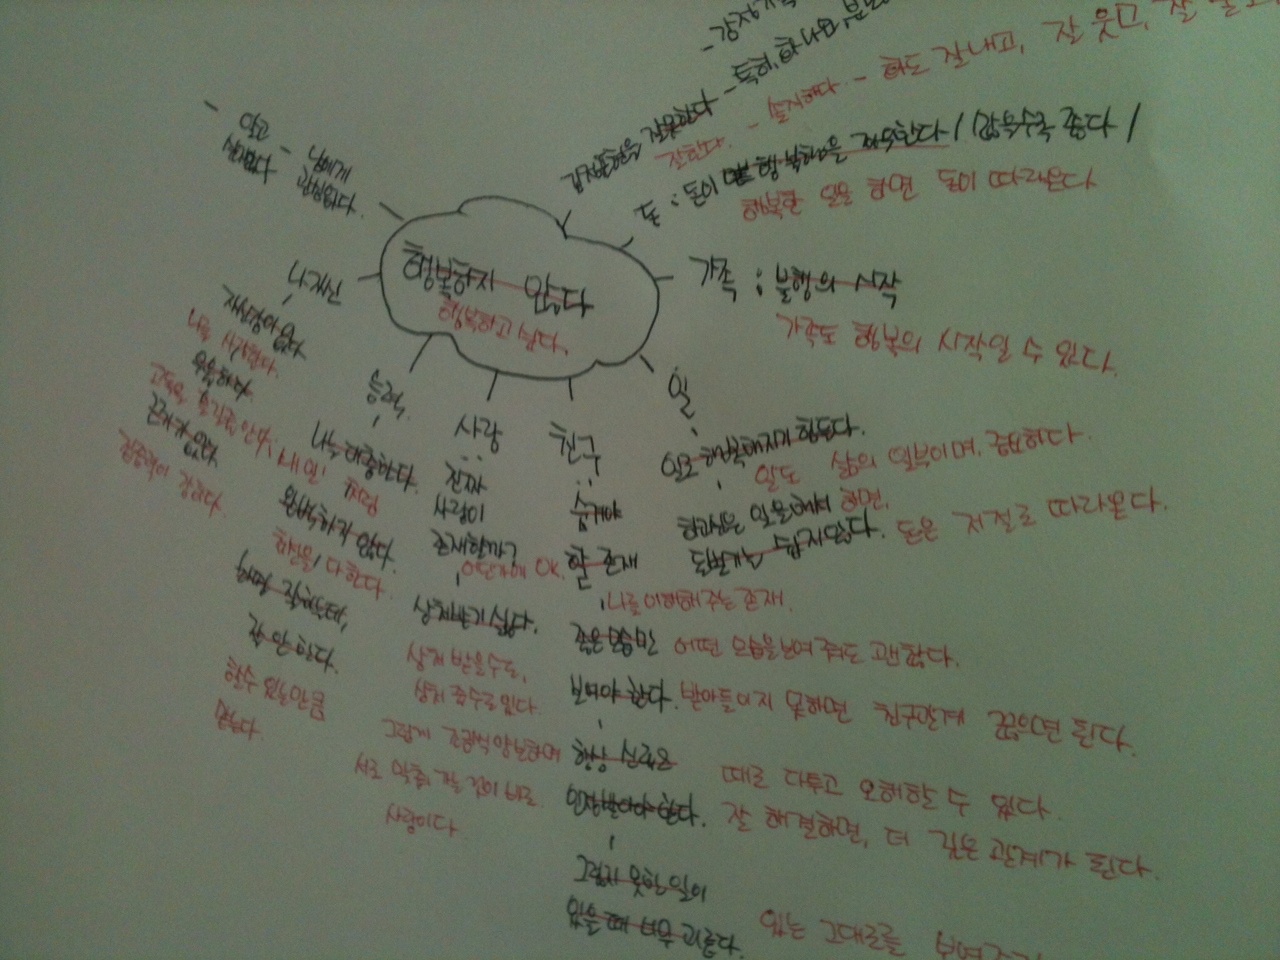 - 감정
감정표현을 잘못한다 - 특히, 화나고, 분노
잘한다. - 솔직하다 - 화도 잘내고, 잘 웃고, 잘
돈 : 돈이 행복하는을 좌우한다 / 많을수록 좋다 /
행복한 일을 하면 돈이 따라온다
가족 : 불행의 시작
가족도 행복의 시작일 수 있다.
행복하지 않다
행복하고 싶다.
- 남에게
관심없다.
나자신
자신감이 없다
무능하다
끈기가 없다.
집중력이 강하다
능력.
나는 대충한다.
'내 일' 처럼
완벽하지 않다.
최선을 다한다.
하면 잘하는데,
잘 안 한다.
할수 있는만큼
사랑
진짜
사랑이
존재할까?
이런자에 OK.
상처받기 싫다.
상처 받을수도,
상처 줄수도 있다.
그렇게 조금씩 양보하며
서로 맞춰 가는 것이 바로
사랑이다
친구
숨겨야
할 존재
나를 이해해주는 존재.
좋은 모습만 어떤 모습을 보여줘도 괜찮다.
보여야 한다. 받아들이지 못하면 친구관계 끊으면 된다.
항상 신뢰를 때로 다투고 오해할 수 있다.
인정받아야 한다. 잘 해결하면, 더 깊은 관계가 된다.
그렇지 못한 일이
있을 때 너무 괴롭다. 있는 그대로를
일
일로 행복해지기 힘든다.
일도 삶의 일부이며, 중요하다.
하고싶은 일을 해서 하면,
돈벌기는 쉽지않다. 돈은 저절로 따라온다.